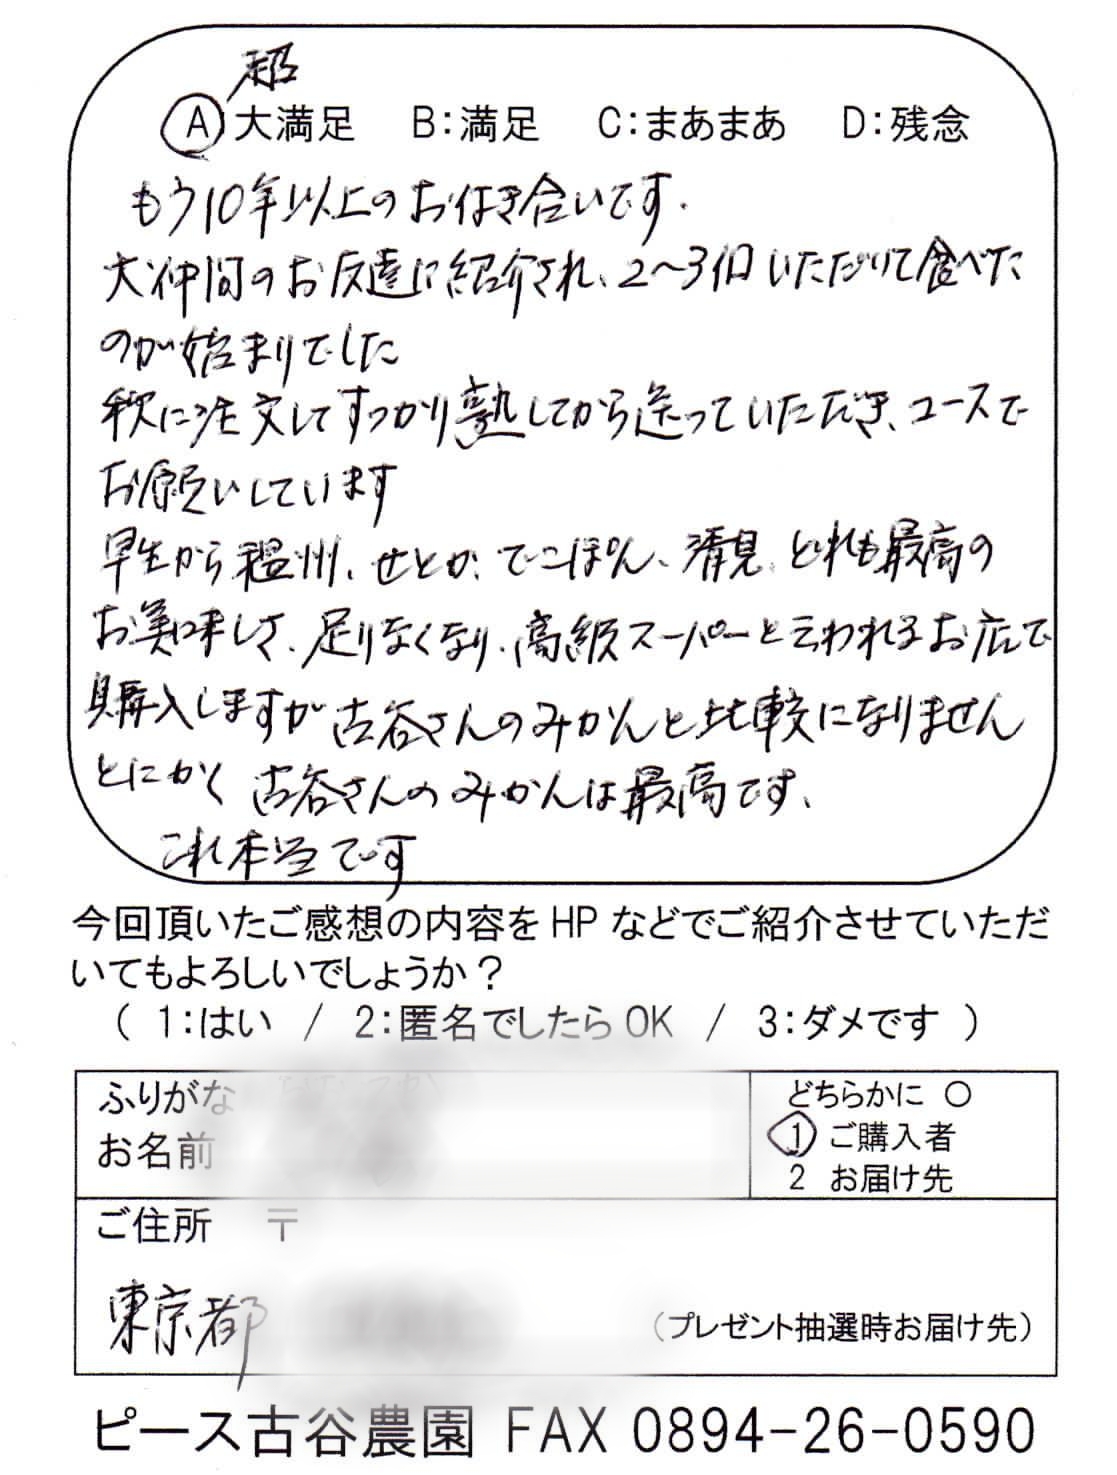 超
A 大満足 B:満足 C:まあまあ D:残念
もう10年以上のお付き合いです.
犬仲間のお友達に紹介され、2〜3個いただいて食べた
のが始まりでした
秋に注文してすっかり熟してから送っていただき、コースで
お願いしています
早生から温州、せとか、でこぽん、清見、どれも最高の
お美味しさ、足りなくなり、高級スーパーと言われるお店で
購入しますが古谷さんのみかんと比較になりません
とにかく 古谷さんのみかんは最高です、
これ本当です
今回頂いたご感想の内容をHPなどでご紹介させていただ
いてもよろしいでしょうか?
( 1:はい / 2:匿名でしたらOK / 3:ダメです )
ふりがな
お名前
どちらかに ○
1 ご購入者
2 お届け先
ご住所 〒
東京都
(プレゼント抽選時お届け先)
ピース古谷農園 FAX 0894-26-0590